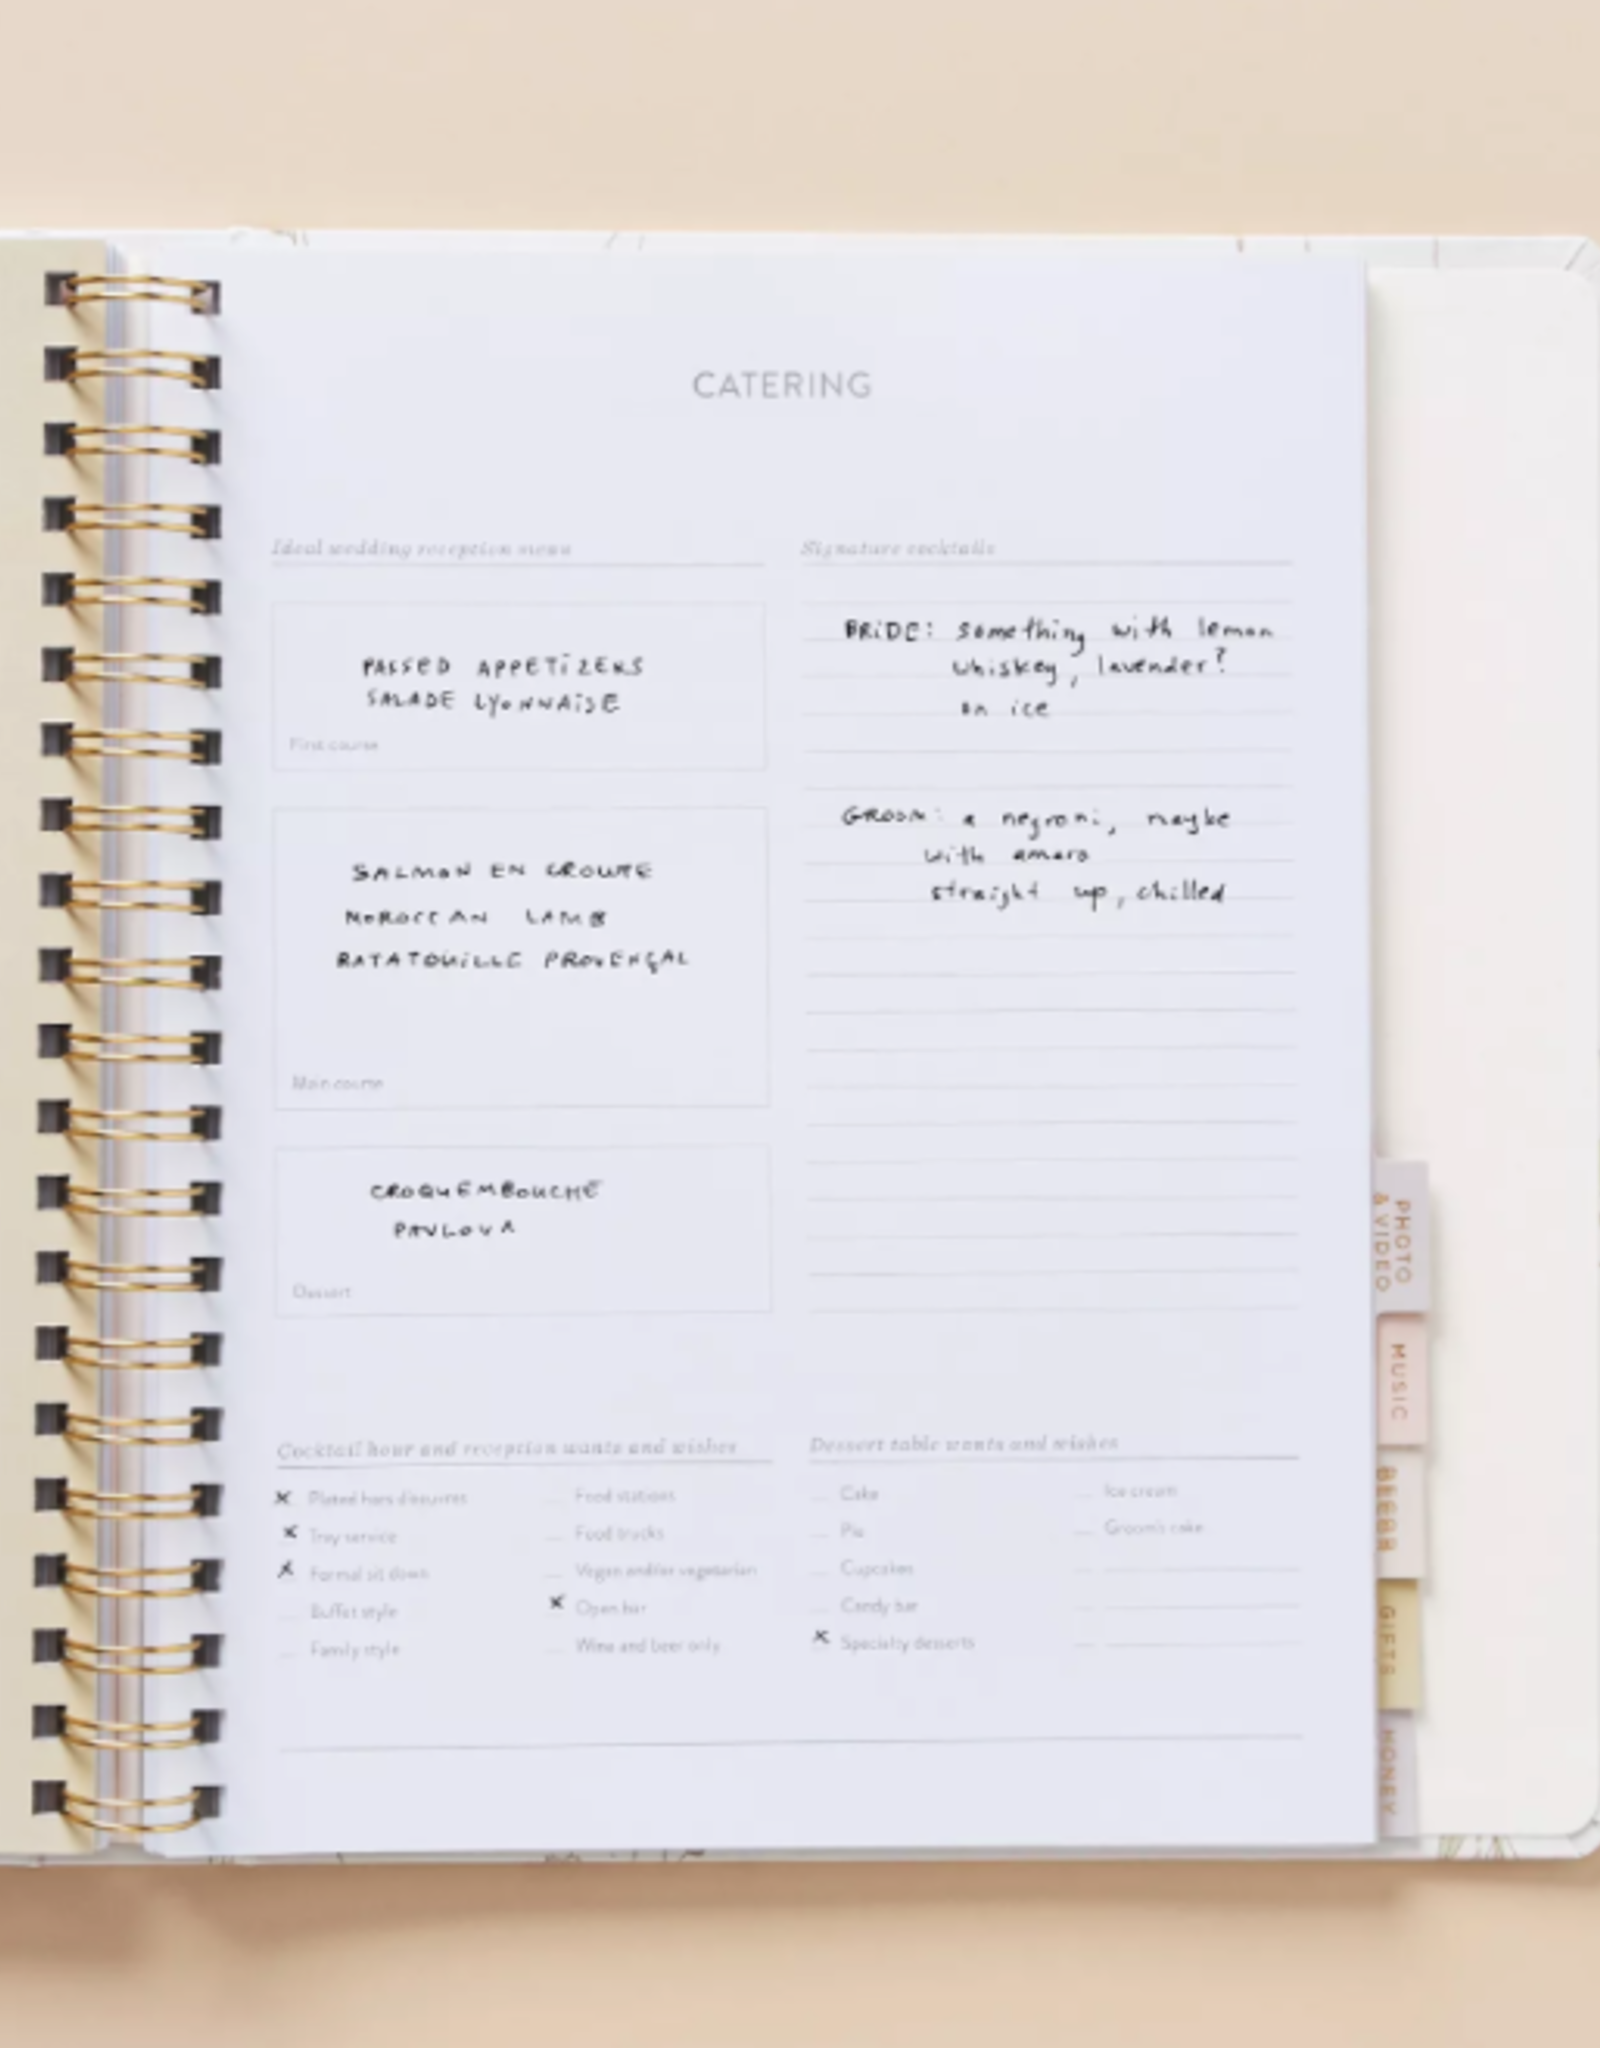 CATERING
Ideal wedding reception menu
PASSED APPETiZERS
SALADE LYONNAiSE
First course
SALMON EN CROUTE
MOROCCAN LAMB
RATATOUiLLE PROVENÇAL
Main course
CROQUEMBOUCHE
PAVLOVA
Dessert
Signature cocktails
BRiDE: something with lemon
whiskey, lavender?
on ice
GROOM: a negroni, maybe
with amaro
straight up, chilled
Cocktail hour and reception wants and wishes
x Plated hors d'oeuvres
x Tray service
x Formal sit down
Buffet style
Family style
Food stations
Food trucks
Vegan and/or vegetarian
x Open bar
Wine and beer only
Dessert table wants and wishes
Cake
Pie
Cupcakes
Candy bar
x Specialty desserts
Ice cream
Groom's cake
PHOTO
& VIDEO
MUSIC
GIFTS